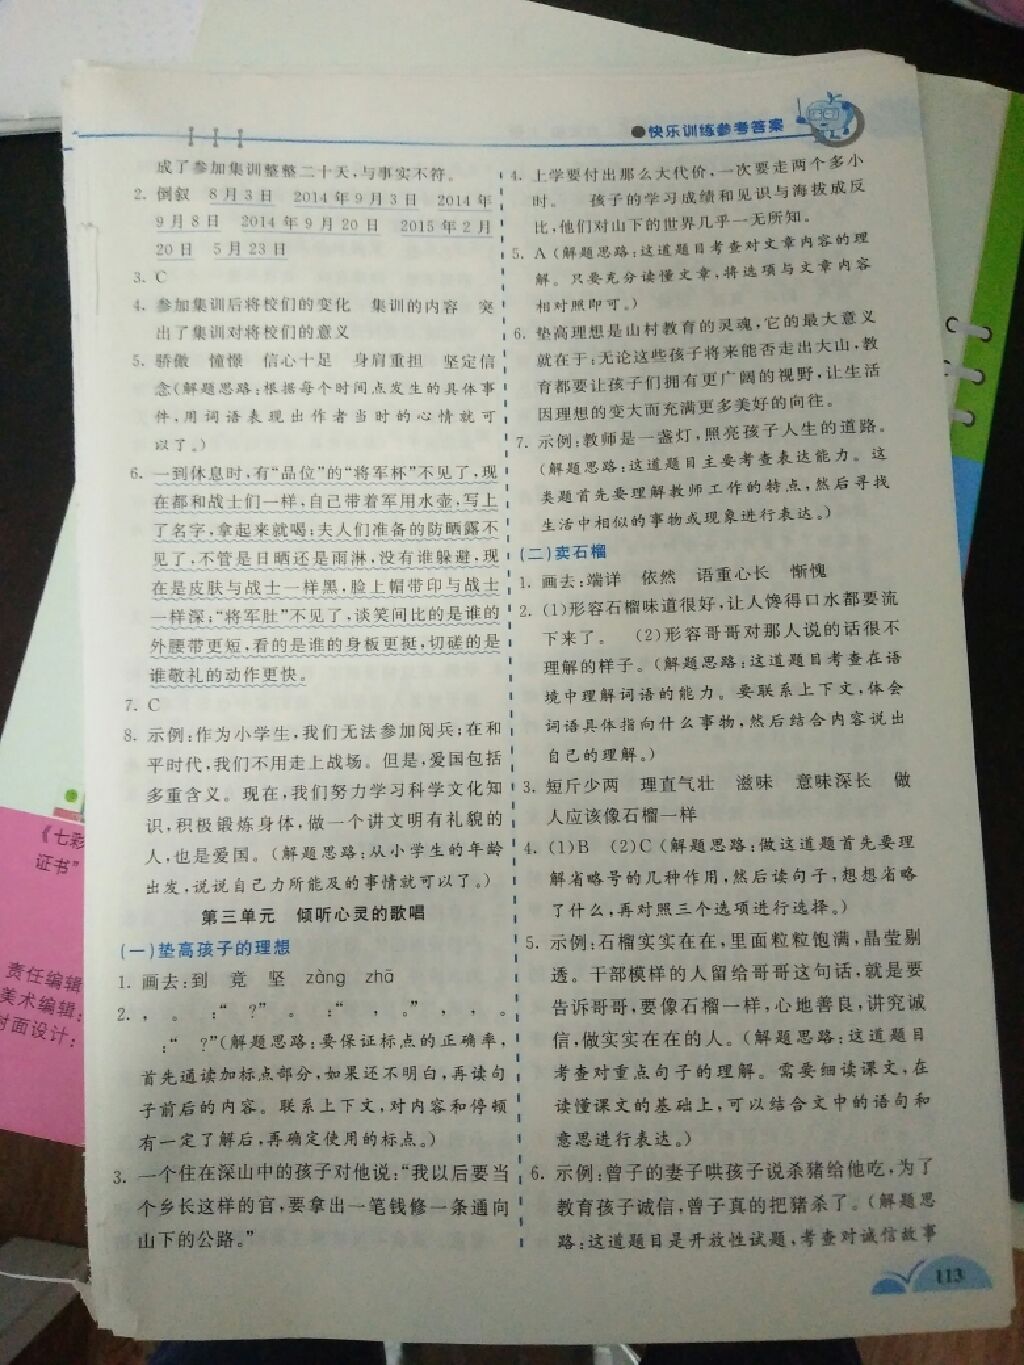 快乐训练参考答案
成了参加集训整整二十天,与事实不符。
2. 倒叙 8月3日 2014年9月3日 2014年
9月8日 2014年9月20日 2015年2月
20日 5月23日
3. C
4. 参加集训后将校们的变化 集训的内容 突
出了集训对将校们的意义
5. 骄傲 憧憬 信心十足 身肩重担 坚定信
念(解题思路:根据每个时间点发生的具体事
件,用词语表现出作者当时的心情就可
以了。)
6. 一到休息时,有“品位”的“将军杯”不见了,现
在都和战士们一样,自己带着军用水壶,写上
了名字,拿起来就喝;夫人们准备的防晒露不
见了,不管是日晒还是雨淋,没有谁躲避,现
在是皮肤与战士一样黑,脸上帽带印与战士
一样深;“将军肚”不见了,谈笑间比的是谁的
外腰带更短,看的是谁的身板更挺,切磋的是
谁敬礼的动作更快。
7. C
8. 示例:作为小学生,我们无法参加阅兵;在和
平时代,我们不用走上战场。但是,爱国包括
多重含义。现在,我们努力学习科学文化知
识,积极锻炼身体,做一个讲文明有礼貌的
人,也是爱国。(解题思路:从小学生的年龄
出发,说说自己力所能及的事情就可以了。)
第三单元 倾听心灵的歌唱
(一)垫高孩子的理想
1. 画去:到 竟 坚 zàng zhā
2. , 。 :“ ?” 。 :“ , 。” , , 。
:“ ?”(解题思路:要保证标点的正确率,
首先通读加标点部分,如果还不明白,再读句
子前后的内容。联系上下文,对内容和停顿
有一定了解后,再确定使用的标点。)
3. 一个住在深山中的孩子对他说:“我以后要当
个乡长这样的官,要拿出一笔钱修一条通向
山下的公路。”
4. 上学要付出那么大代价,一次要走两个多小
时。 孩子的学习成绩和见识与海拔成反
比,他们对山下的世界几乎一无所知。
5. A(解题思路:这道题目考查对文章内容的理
解。只要充分读懂文章,将选项与文章内容
相对照即可。)
6. 垫高理想是山村教育的灵魂,它的最大意义
就在于:无论这些孩子将来能否走出大山,教
育都要让孩子们拥有更广阔的视野,让生活
因理想的变大而充满更多美好的向往。
7. 示例:教师是一盏灯,照亮孩子人生的道路。
(解题思路:这道题目主要考查表达能力。这
类题首先要理解教师工作的特点,然后寻找
生活中相似的事物或现象进行表达。)
(二)卖石榴
1. 画去:端详 依然 语重心长 惭愧
2. (1)形容石榴味道很好,让人馋得口水都要流
下来了。 (2)形容哥哥对那人说的话很不
理解的样子。(解题思路:这道题目考查在语
境中理解词语的能力。要联系上下文,体会
词语具体指向什么事物,然后结合内容说出
自己的理解。)
3. 短斤少两 理直气壮 滋味 意味深长 做
人应该像石榴一样
4. (1)B (2)C(解题思路:做这道题首先要理
解省略号的几种作用,然后读句子,想想省略
了什么,再对照三个选项进行选择。)
5. 示例:石榴实实在在,里面粒粒饱满,晶莹剔
透。干部模样的人留给哥哥这句话,就是要
告诉哥哥,要像石榴一样,心地善良,讲究诚
信,做实实在在的人。(解题思路:这道题目
考查对重点句子的理解。需要细读课文,在
读懂课文的基础上,可以结合文中的语句和
意思进行表达。)
6. 示例:曾子的妻子哄孩子说杀猪给他吃,为了
教育孩子诚信,曾子真的把猪杀了。(解题思
路:这道题目是开放性试题,考查对诚信故事
113
《七彩
证书”
责任编辑
美术编辑:
封面设计: